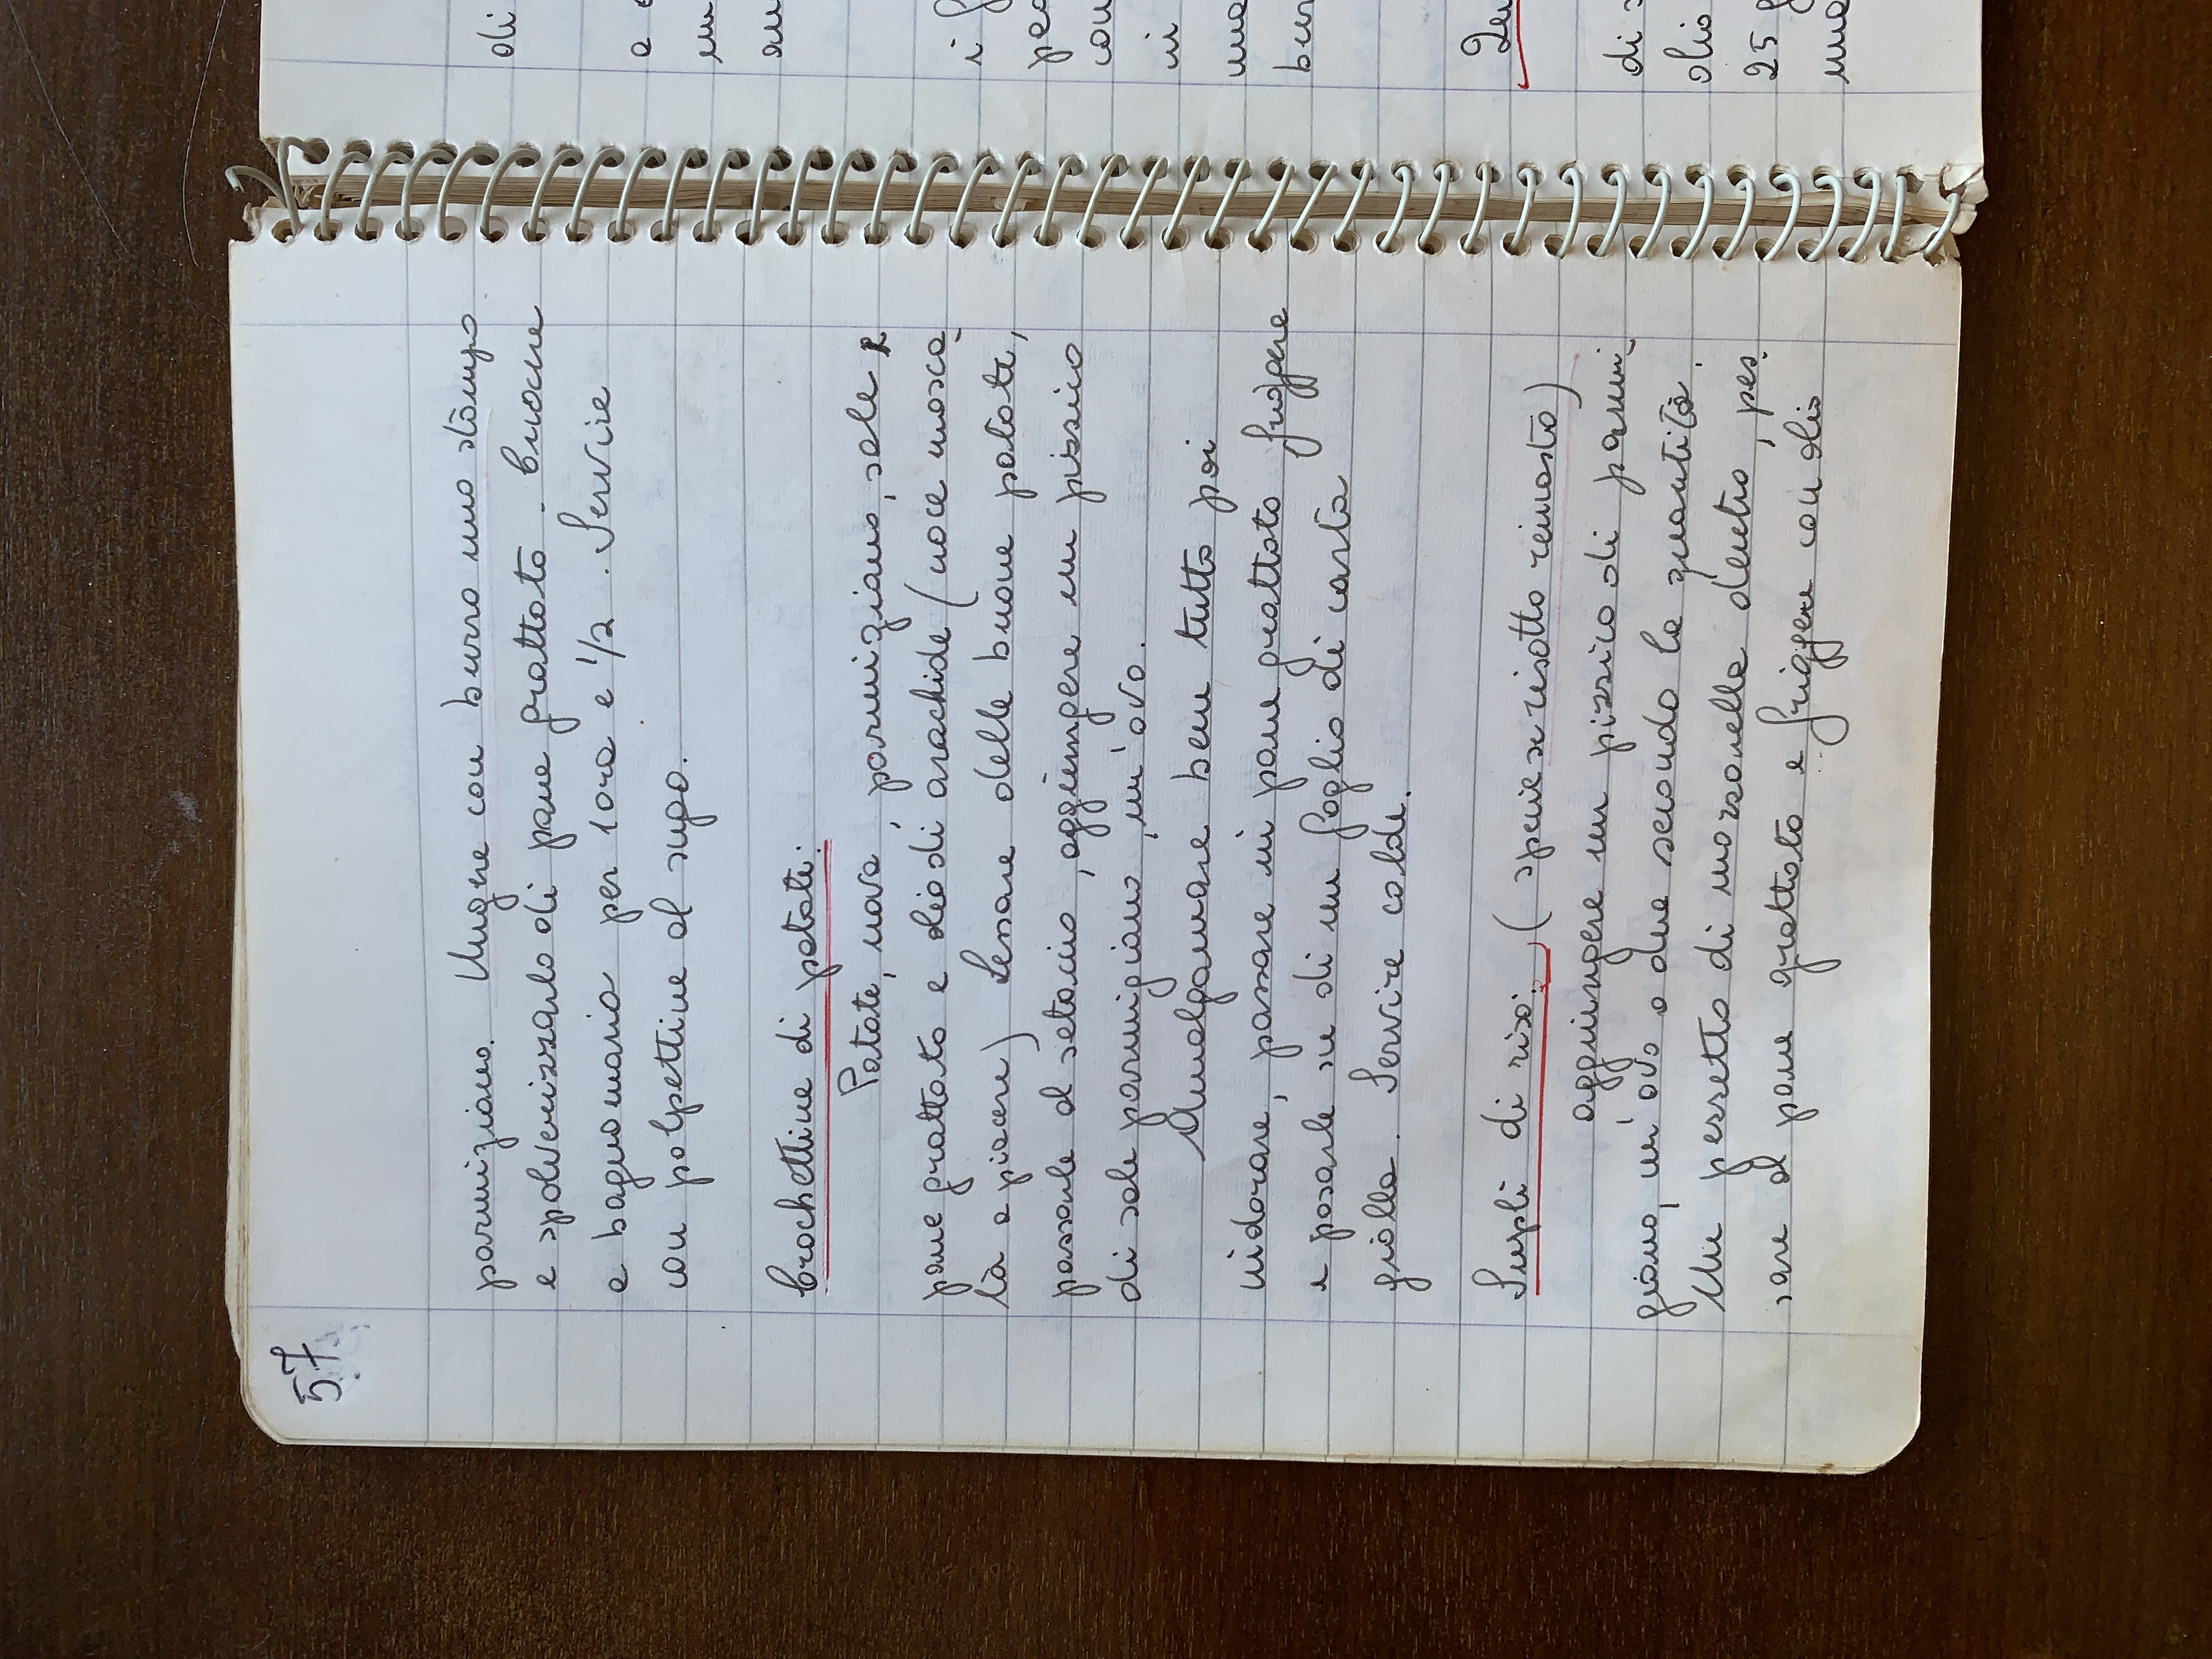 57
parmigiano. Ungere con burro uno stampo
e spolverizzarlo di pane grattato. Cuocere
a bagnomaria per 1 ora e 1/2. Servire
con polpettine al sugo.
Crochettine di patate:
Patate, uova, parmigiano, sale e
pane grattato e olio di arachide (noce mosca-
tà a piacere) Lessare delle buone patate,
passarle al setaccio, aggiungere un pizzico
di sale parmigiano, un'ovo.
Amalgamare bene tutto poi
indorare, passare in pane grattato friggere
e posarle su di un foglio di carta
gialla. Servire calde.
Suplì di riso: (specie se risotto rimasto)
aggiungere un pizzico di parmi-
giano, un'ovo o due secondo la quantità.
Un pezzetto di mozzarella dentro, pas-
sare al pane grattato e friggere con olio
di
a
un
i
con
in
una
bur
di s
olio
25 g
una